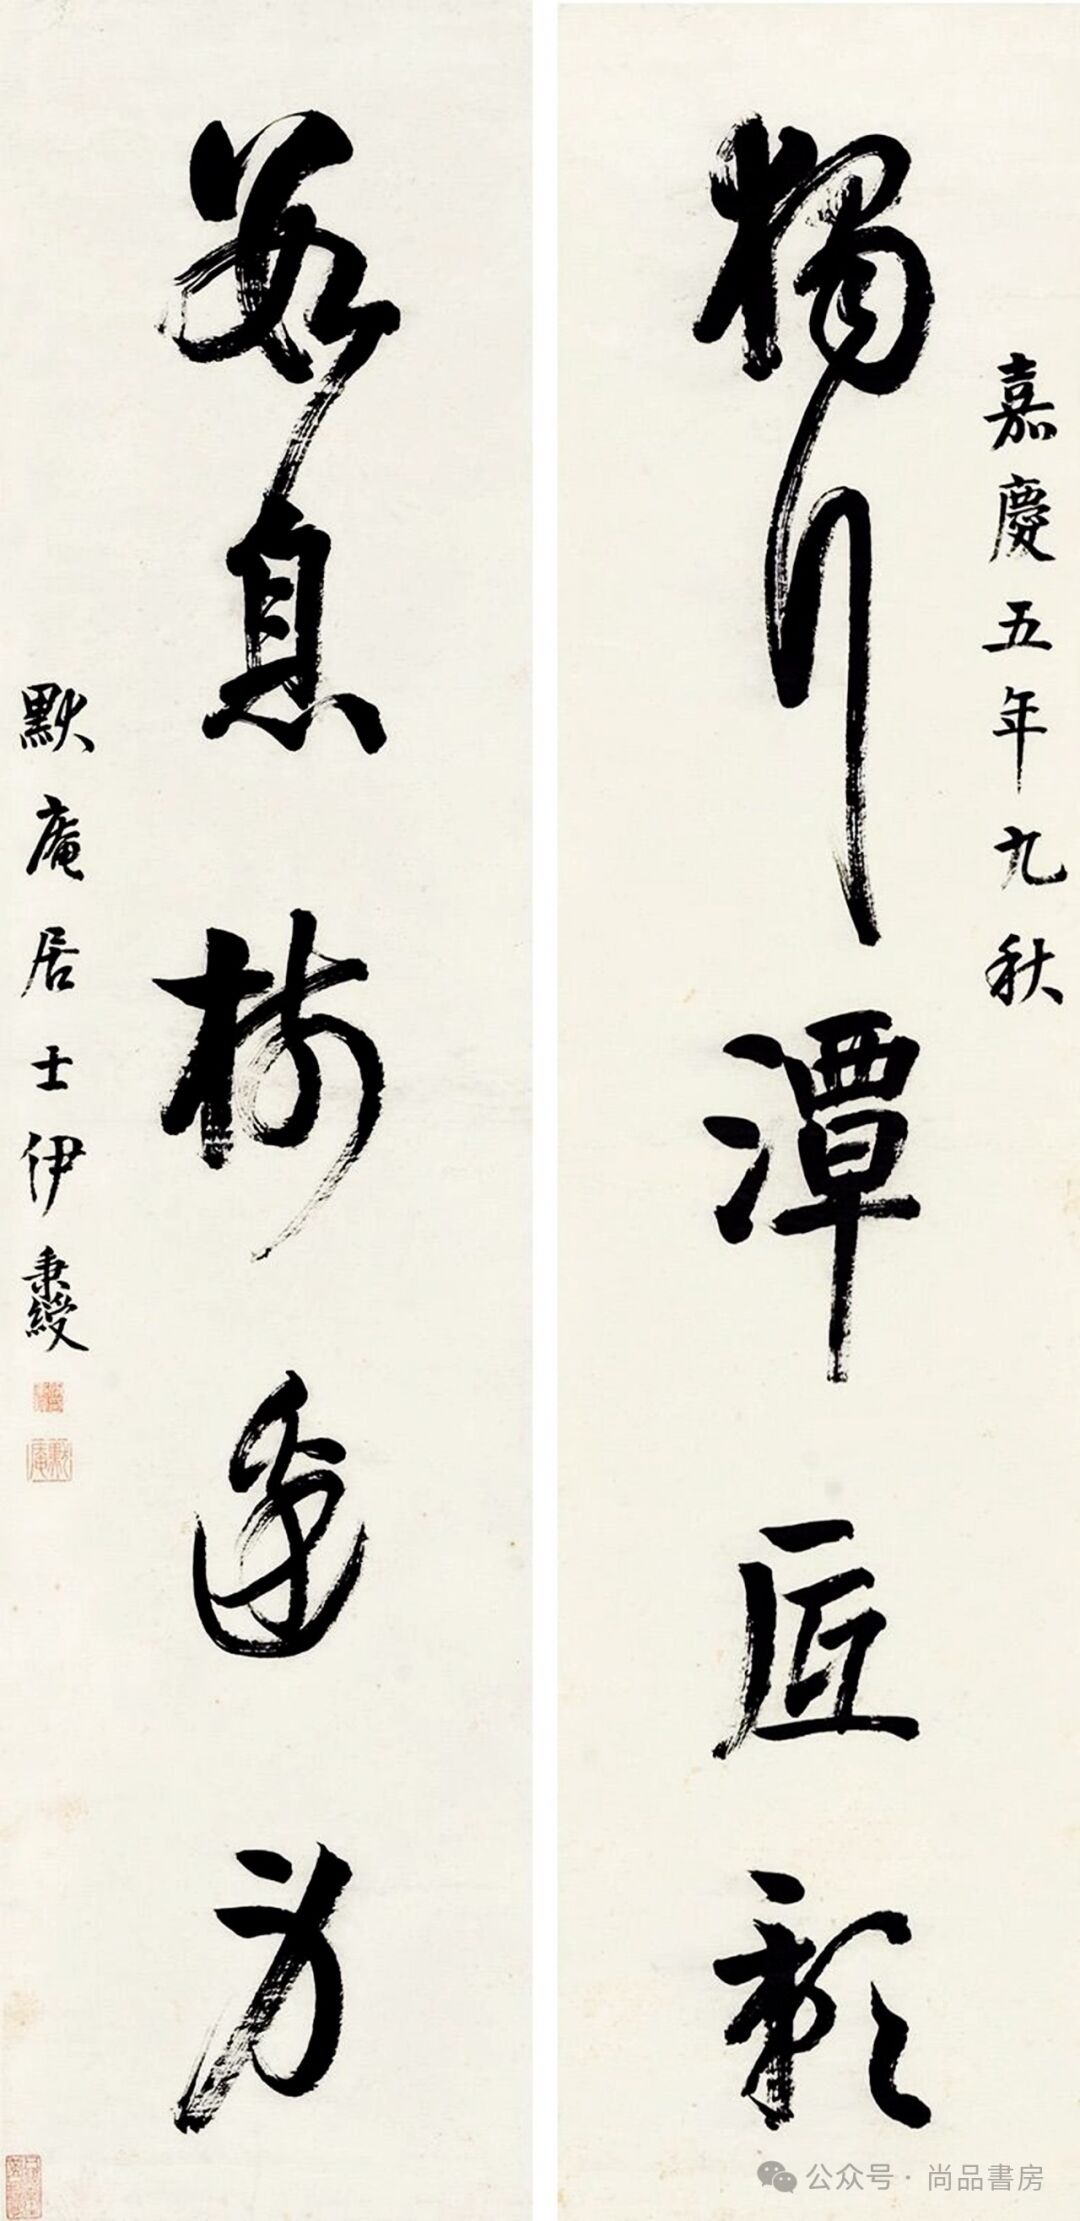 嘉慶五年九秋
獨行潭底影
數息樹邊身
默庵居士伊秉綬
公众号 · 尚品書房